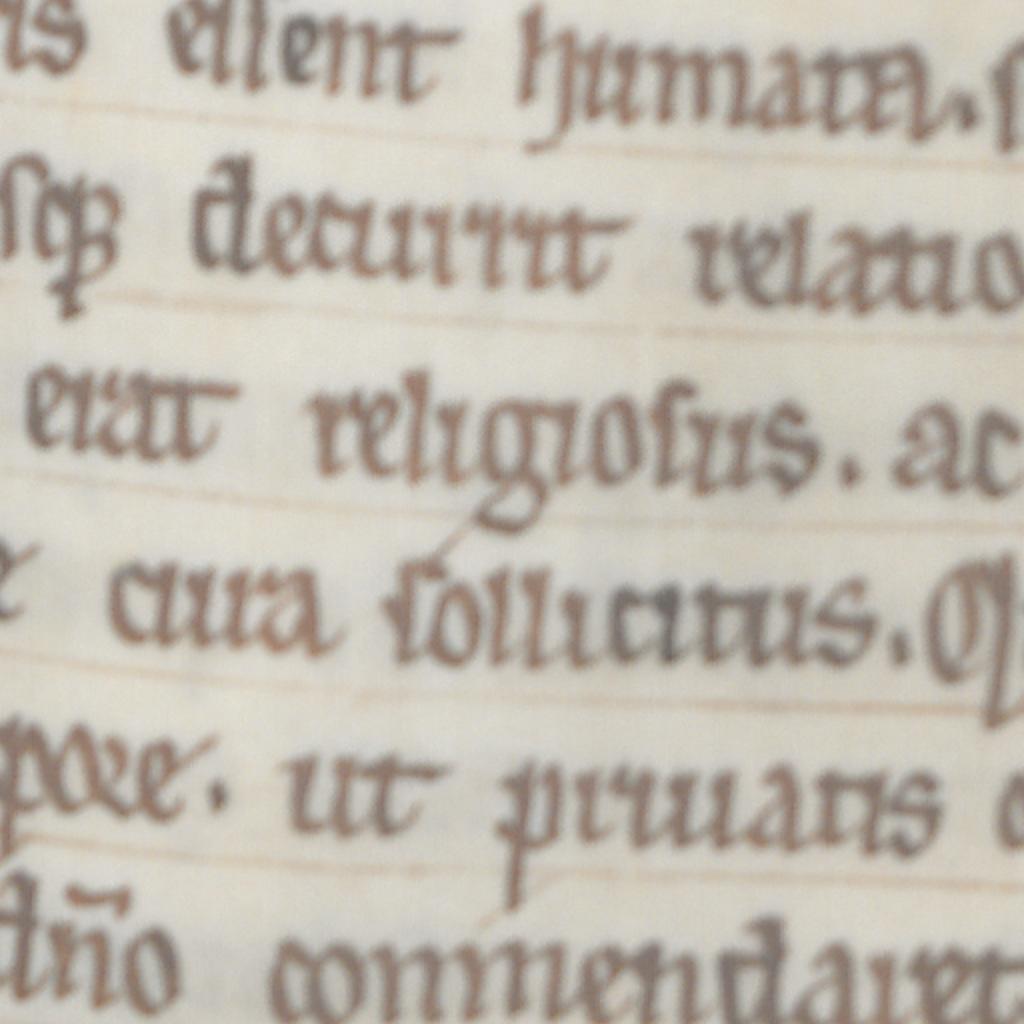 essent humata.
decurrit relatio
erat religiosus. ac
cura sollicitus.
ut privatis
dño commendaret